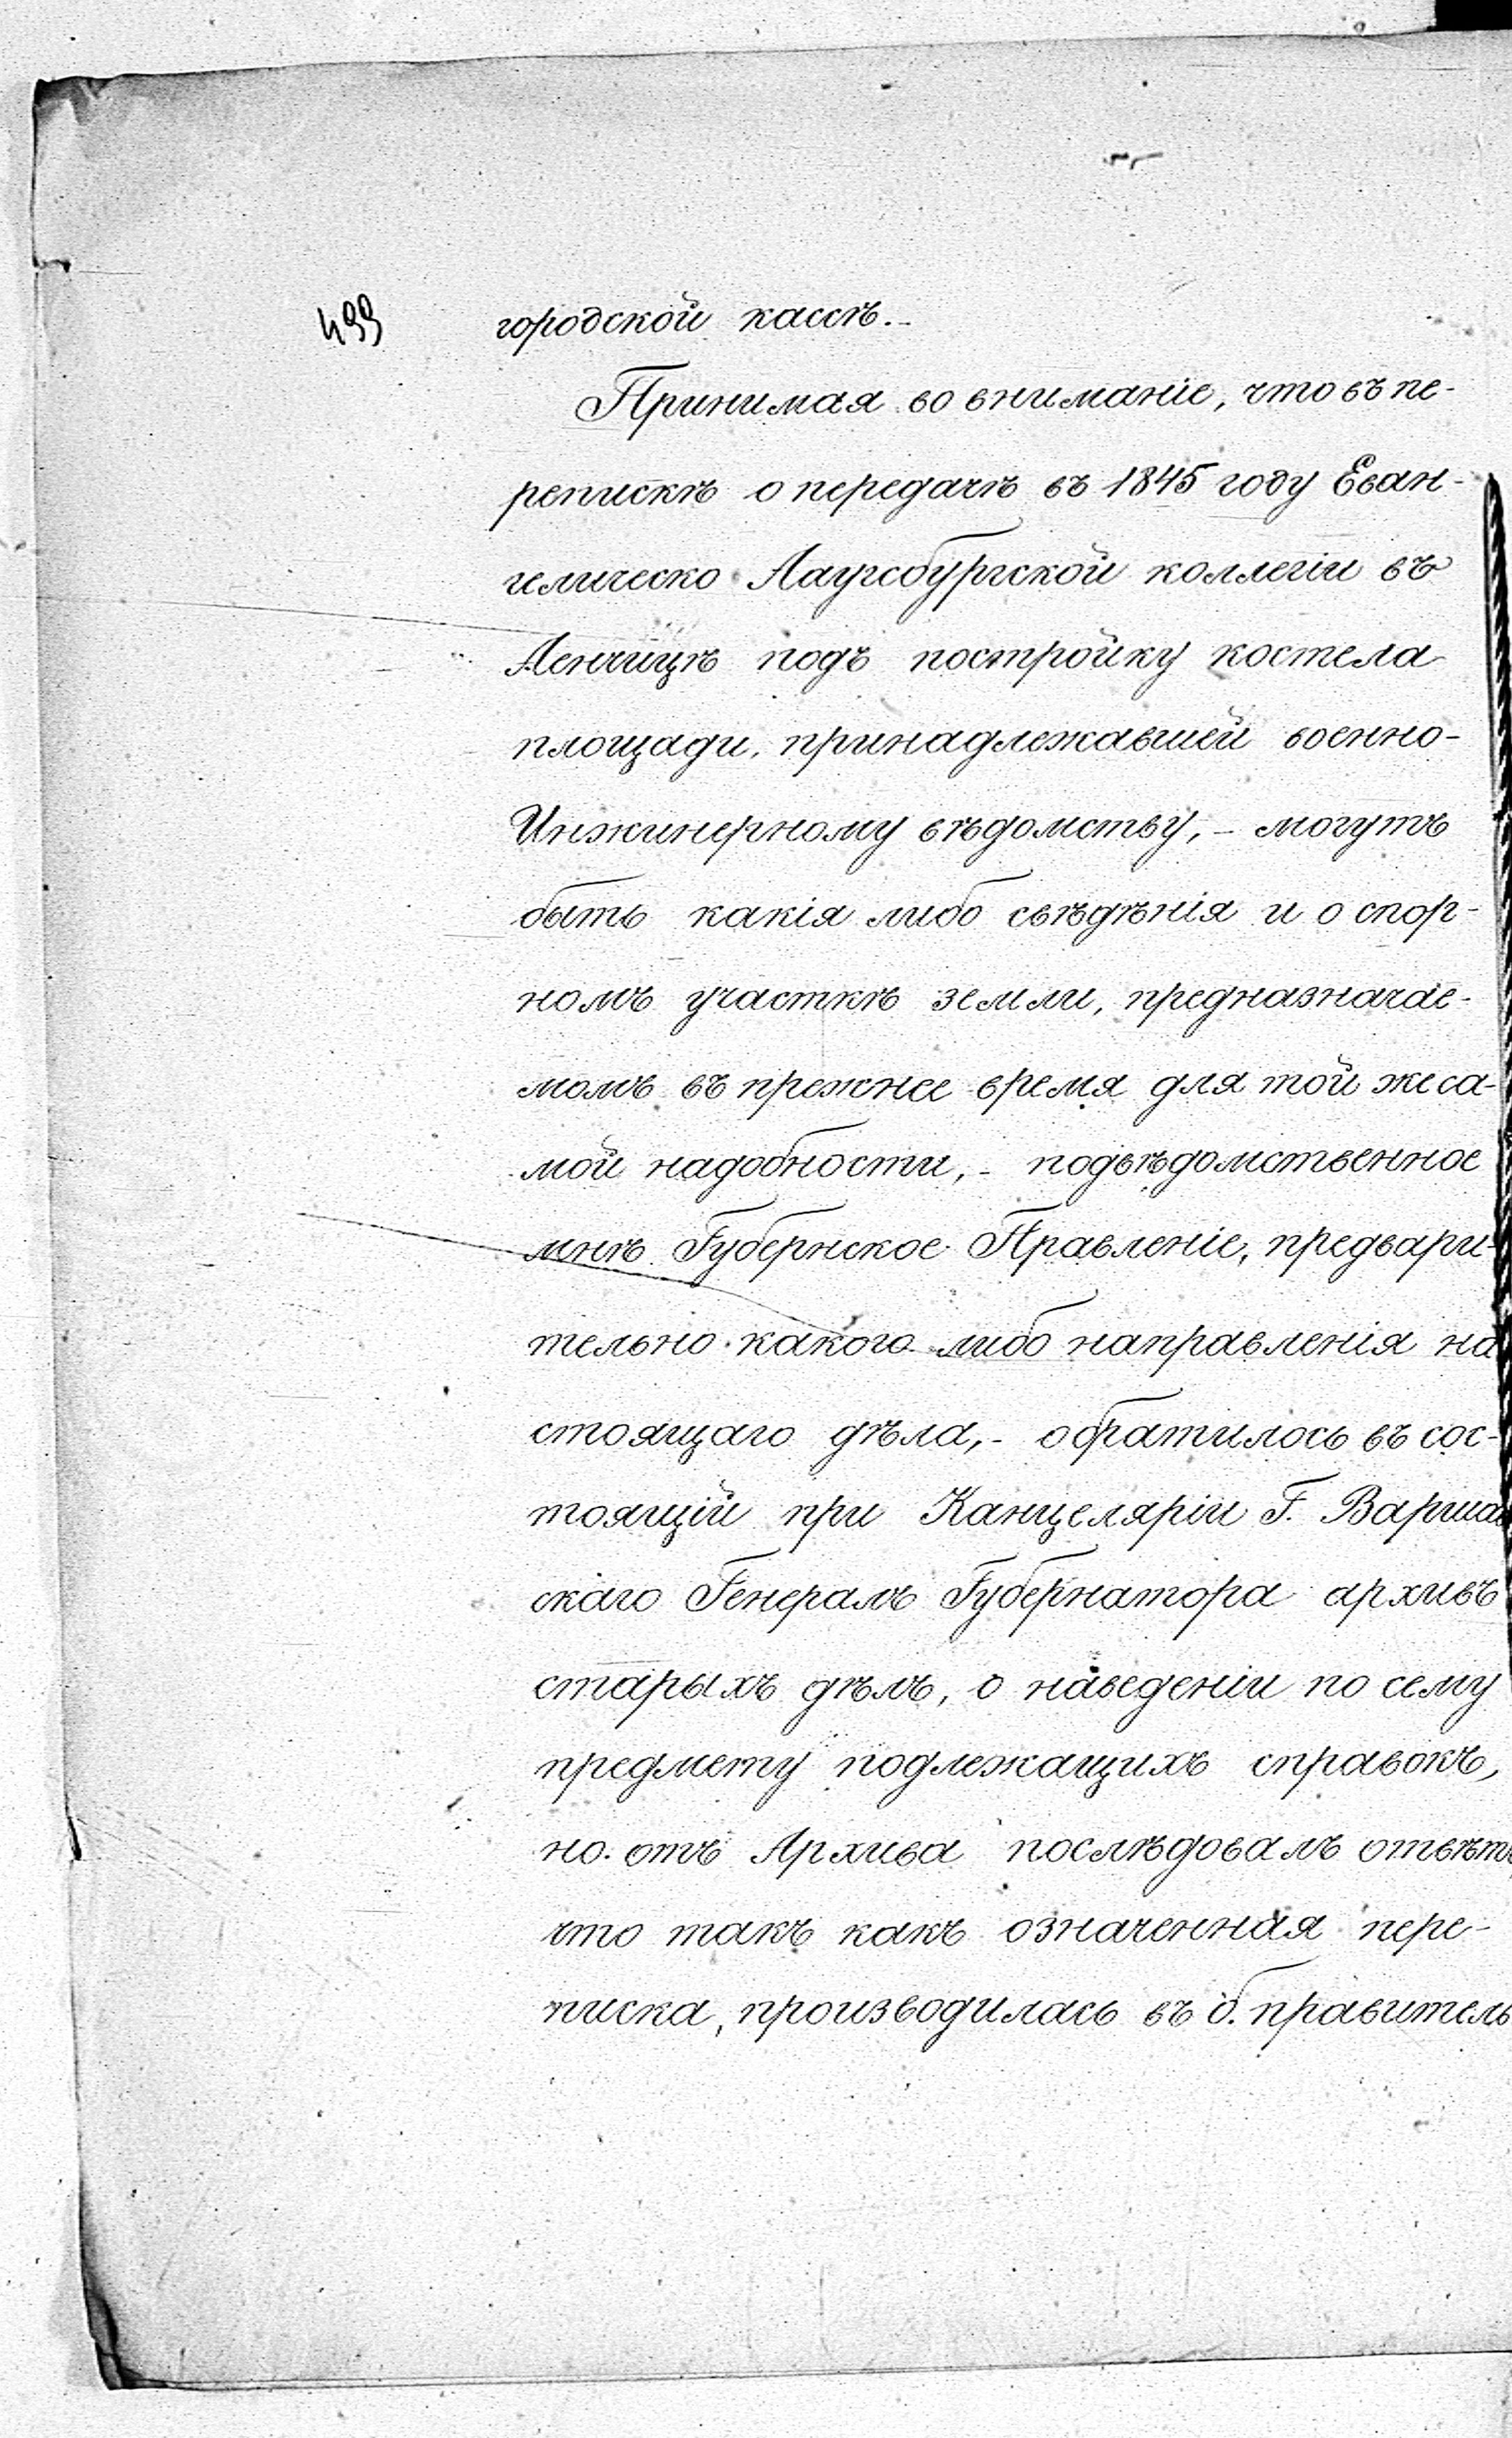 499
городской кассѣ.-
Принимая во вниманіе, что въ пе-
репискѣ о передачѣ въ 1845 году Еван-
гелическо Ааугсбургской коллегіи въ
Ленчицѣ подъ постройку костела
площади, принадлежавшей военно-
Инжинерному вѣдомству, - могутъ
быть какія либо свѣдѣнія и о спор-
номъ участкѣ земли, предназначае-
момъ въ прежнее время для той же са-
мой надобности, - подвѣдомственное
мнѣ Губернское Правленіе, предвари-
тельно какого либо направленія на
стоящаго дѣла, - обратилось въ сос-
тоящій при Канцеляріи Г. Варшав
скаго Генералъ Губернатора архивъ
старыхъ дѣлъ, о наведеніи по сему
предмету подлежащихъ справокъ,
но отъ Архива послѣдовалъ отвѣтъ
что такъ какъ означенная пере-
писка, производилась въ б. правитель